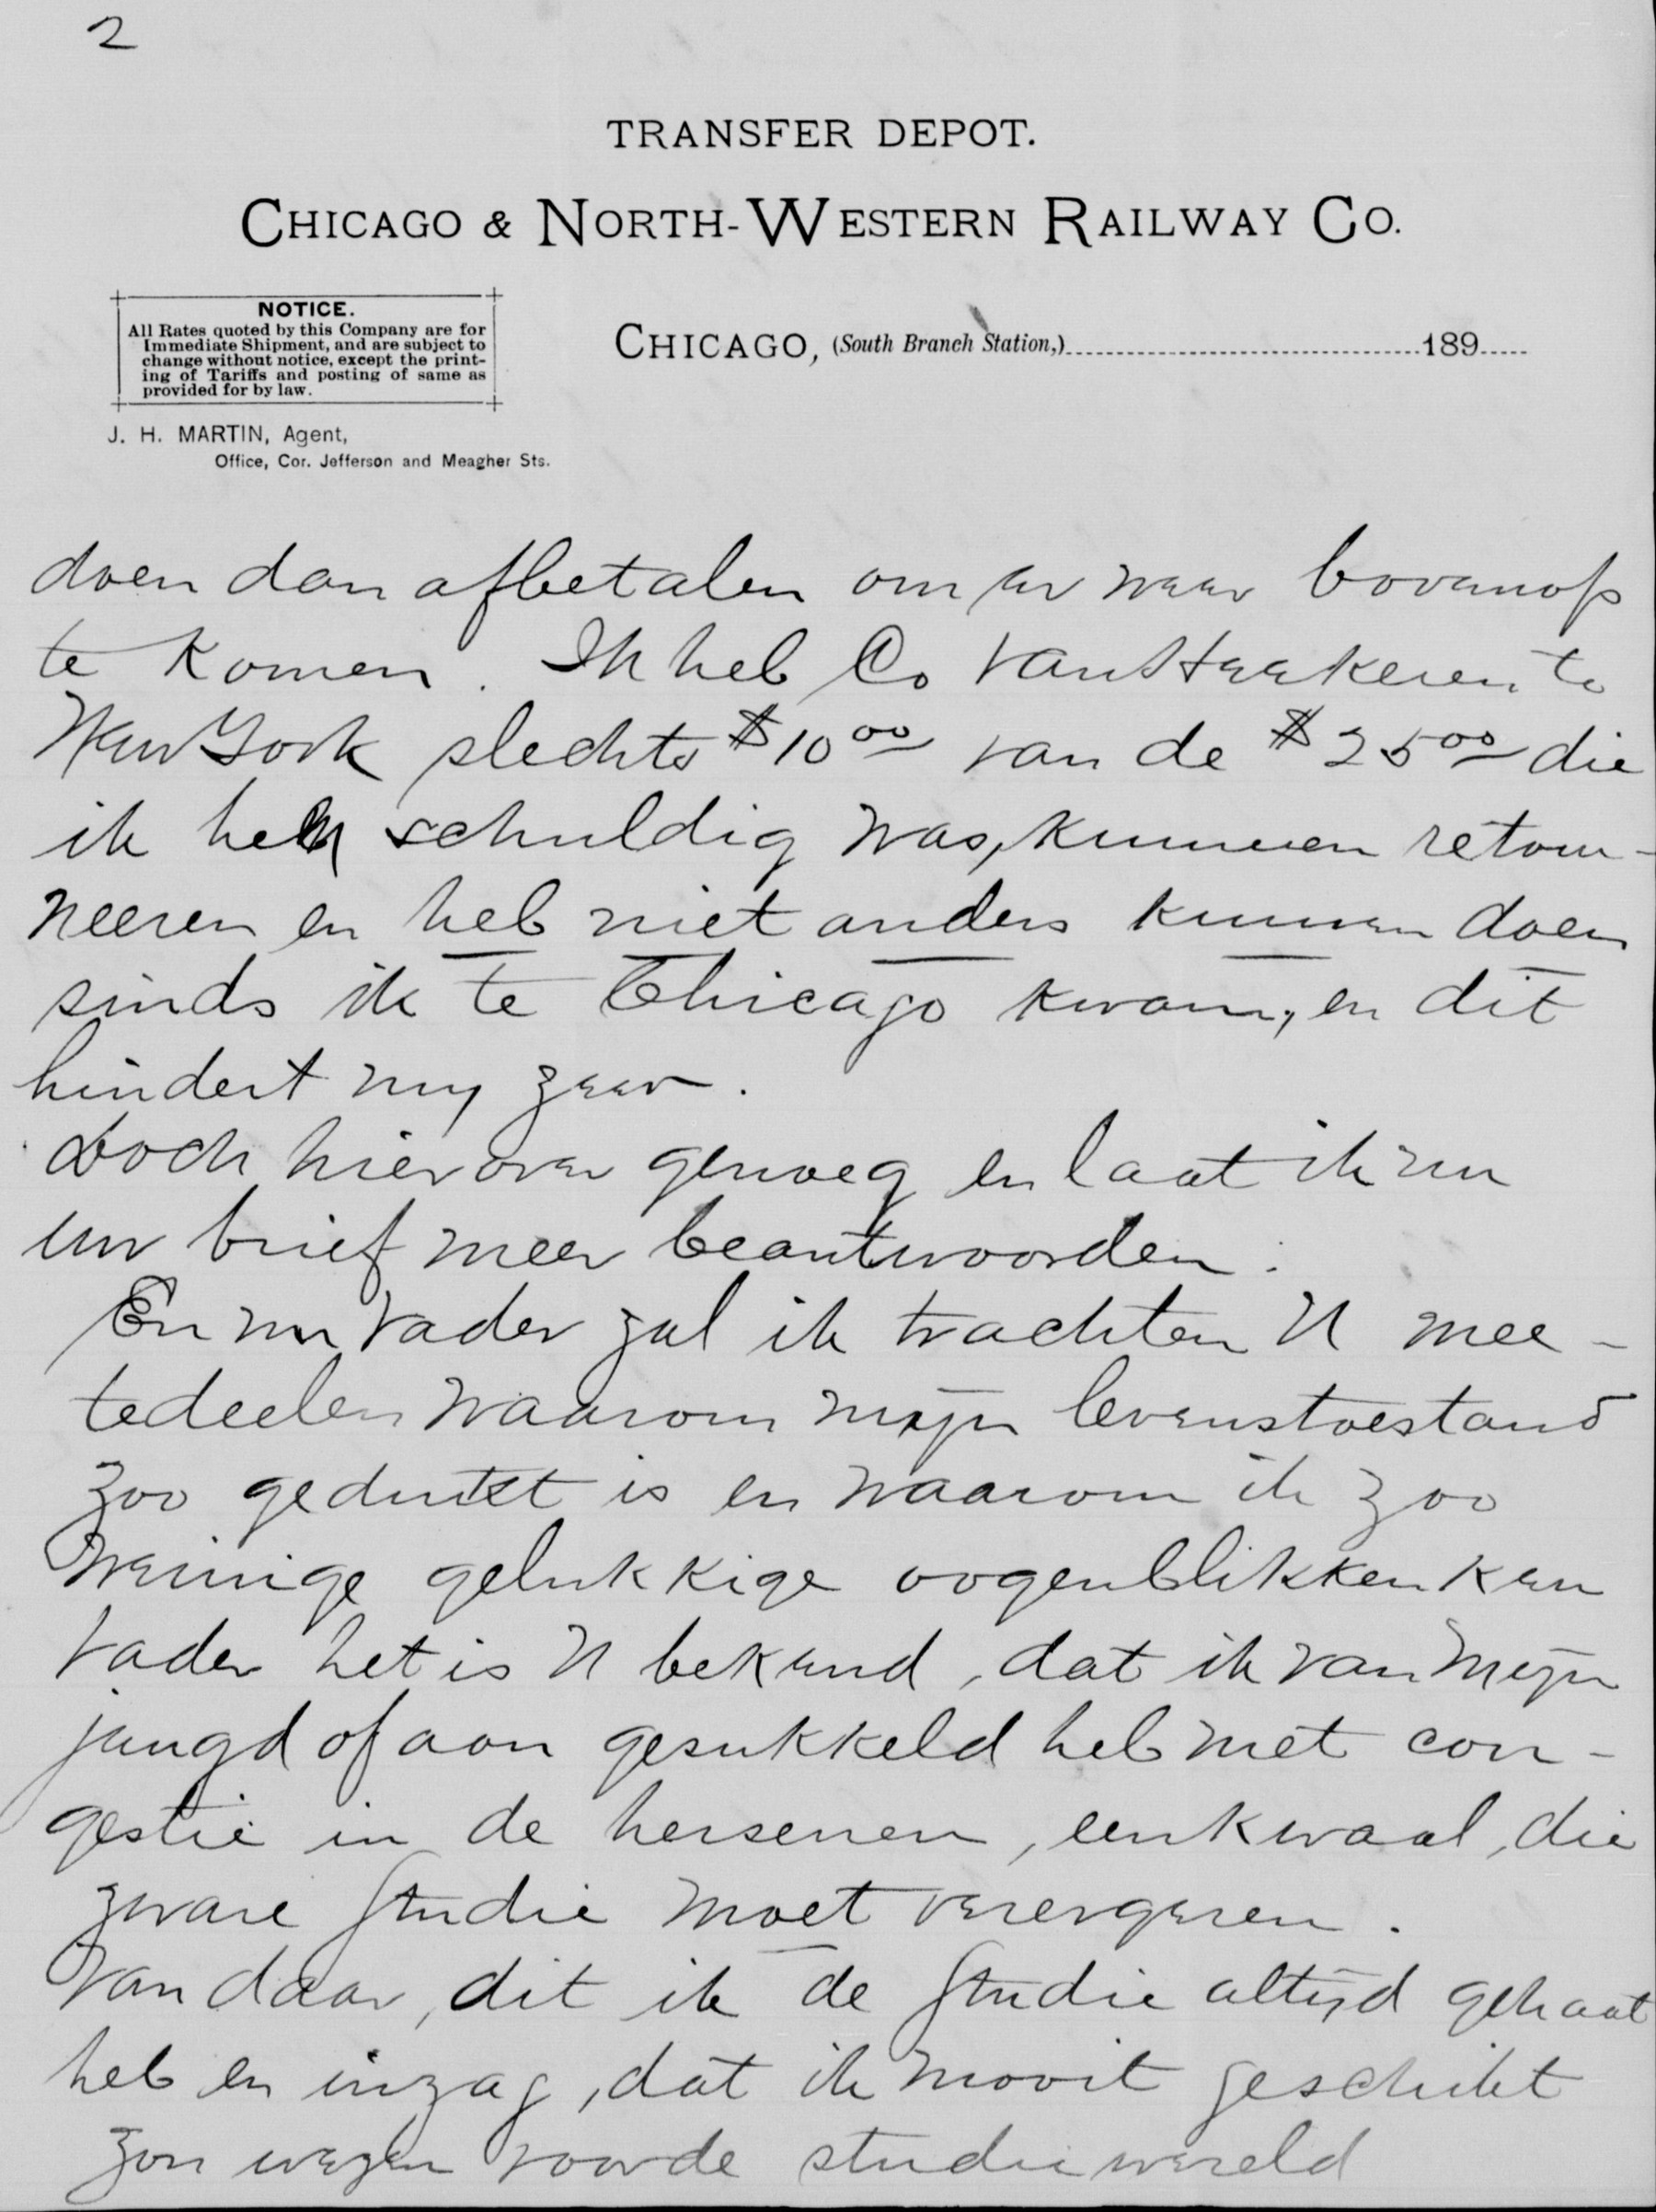 2
TRANSFER DEPOT.
CHICAGO & NORTH-WESTERN RAILWAY CO.
NOTICE.
All Rates quoted by this Company are for
Immediate Shipment, and are subject to
change without notice, except the print-
ing of Tariffs and posting of same as
provided for by law.
CHICAGO, (South Branch Station,) 189
J. H. MARTIN, Agent,
Office, Cor. Jefferson and Meagher Sts.
doen dan afbetalen om er weer bovenop
te komen. Ik heb Co van Heekeren te
New York slechts $10 00 van de $25 00 die
ik hem schuldig was, kunnen retour-
neeren en heb niet anders kunnen doen
sinds ik te Chicago kwam, en dit
hindert my zeer.
Doch hierover genoeg en laat ik nu
uw brief meer beantwoorden.
En nu Vader zal ik trachten U mee-
tedeelen waarom mijn levenstoestand
zoo gedrukt is en waarom ik zoo
weinige gelukkige oogenblikken ken
Vader het is U bekend, dat ik van mijn
jeugd af aan gesukkeld heb met con-
gestie in de hersenen, een kwaal, die
zware studie moet verergeren.
Van daar, dit ik de studie altijd gehaat
heb en inzag, dat ik nooit geschikt
zou wezen voor de studie wereld